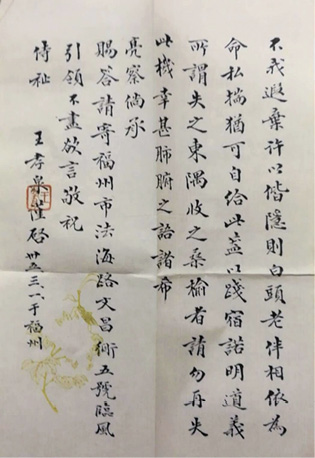 不我遐棄許以偕隱則白頭老伴相依為
命私揣猶可自给此蓋以踐宿諾明道義
所謂失之東隅收之桑榆者請勿再失
此機幸甚肺腑之語諸希
亮察倘承
賜答請寄福州市法海路文昌衖五號臨風
引領不盡欲言敬祝
侍祉
王孝泉 啓 卅五三一于福州